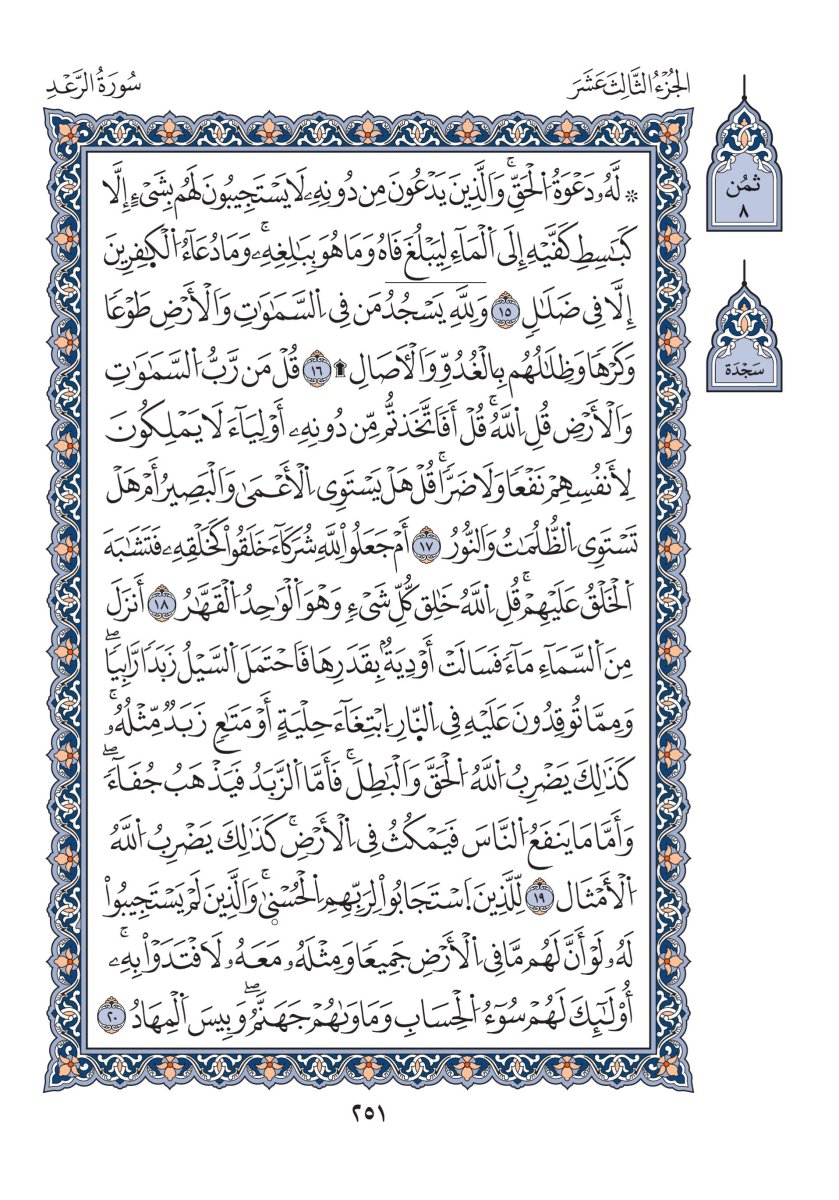 الجُزْءُ الثَّالِثَ عَشَرَ
سُورَةُ الرَّعْدِ
ثُمُن
٨
سَجْدَة
۞ لَهُۥ دَعْوَةُ اُلْحَقِّۚ وَالَّذِينَ يَدْعُونَ مِن دُونِهِۦ لَا يَسْتَجِيبُونَ لَهُم بِشَيْءٍ إِلَّا
كَبَٰسِطِ كَفَّيْهِ إِلَى اَلْمَآءِ لِيَبْلُغَ فَاهُ وَمَا هُوَ بِبَٰلِغِهِۦۚ وَمَا دُعَآءُ اُلْكٜفِرِينَ
إِلَّا فِي ضَلَٰلٖ ١٥ وَلِلَّهِ يَسْجُدُ مَن فِي اِلسَّمَٰوَٰتِ وَالْأَرْضِ طَوْعٗا
وَكَرْهٗا وَظِلَٰلُهُم بِالْغُدُوِّ وَالْأٓصَالِ۩ ١٦ قُلْ مَن رَّبُّ اُلسَّمَٰوَٰتِ
وَالْأَرْضِ قُلِ اِللَّهُۚ قُلْ أَفَاتَّخَذتُّم مِّن دُونِهِۦ أَوْلِيَآءَ لَا يَمْلِكُونَ
لِأَنفُسِهِمْ نَفْعٗا وَلَا ضَرّٗاۚ قُلْ هَلْ يَسْتَوِي اِلْأَعْمَىٰ وَالْبَصِيرُ أَمْ هَلْ
تَسْتَوِي اِلظُّلُمَٰتُ وَالنُّورُ ١٧ أَمْ جَعَلُواْ لِلَّهِ شُرَكَآءَ خَلَقُواْ كَخَلْقِهِۦ فَتَشَٰبَهَ
اَلْخَلْقُ عَلَيْهِمْۚ قُلِ اِللَّهُ خَٰلِقُ كُلِّ شَيْءٖ وَهْوَ اَلْوَٰحِدُ اُلْقَهَّٰرُ ١٨ أَنزَلَ
مِنَ اَلسَّمَآءِ مَآءٗ فَسَالَتْ أَوْدِيَةُۢ بِقَدَرِهَا فَاحْتَمَلَ اَلسَّيْلُ زَبَدٗا رَّابِيٗاۖ
وَمِمَّا تُوقِدُونَ عَلَيْهِ فِي اِلنّٜارِ اِبْتِغَآءَ حِلْيَةٍ أَوْ مَتَٰعٖ زَبَدٞ مِّثْلُهُۥۚ
كَذَٰلِكَ يَضْرِبُ اُللَّهُ اُلْحَقَّ وَالْبَٰطِلَۚ فَأَمَّا اَلزَّبَدُ فَيَذْهَبُ جُفَآءٗۖ
وَأَمَّا مَا يَنفَعُ اُلنَّاسَ فَيَمْكُثُ فِي اِلْأَرْضِۚ كَذَٰلِكَ يَضْرِبُ اُللَّهُ
اُلْأَمْثَالَ ١٩ لِلَّذِينَ اَسْتَجَابُواْ لِرَبِّهِمِ اِلْحُسْنٜىٰۚ وَالَّذِينَ لَمْ يَسْتَجِيبُواْ
لَهُۥ لَوْ أَنَّ لَهُم مَّا فِي اِلْأَرْضِ جَمِيعٗا وَمِثْلَهُۥ مَعَهُۥ لَافْتَدَوْاْ بِهِۦۚ
أُوْلَٰٓئِكَ لَهُمْ سُوٓءُ اُلْحِسَابِ وَمَأْوَىٰهُمْ جَهَنَّمُۖ وَبِيسَ اَلْمِهَادُ ٢٠
٢٥١